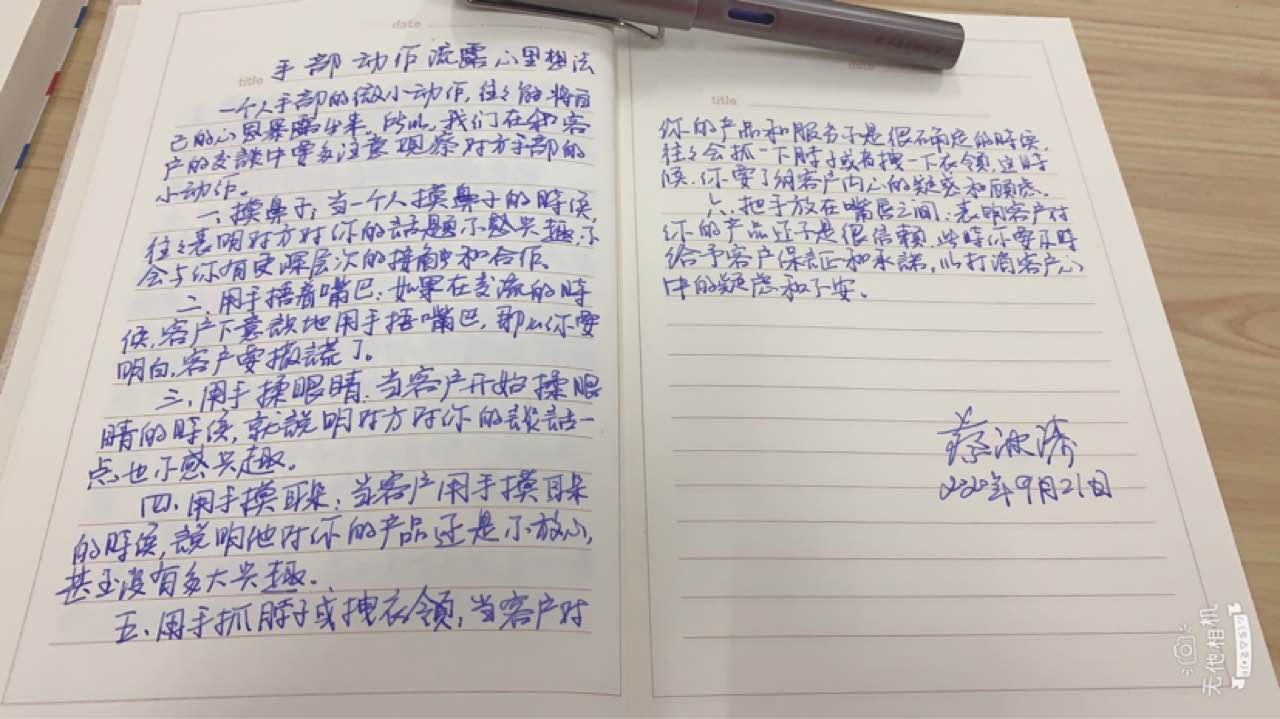 date
title
手部动作流露心里想法
一个人手部的微小动作,往々能将自
己的心思暴露出来。所以,我们在和客
户的交談中要多注意观察对方手部的
小动作。
一、摸鼻子:当一个人摸鼻子的時候,
往々表明对方对你的話題不感兴趣,不
会与你有更深层次的接触和合作。
二、用手捂着嘴巴:如果在交流的時
候,客户下意識地用手捂嘴巴,那么你要
明白,客户要撒謊了。
三、用手揉眼睛:当客户开始揉眼
睛的時侯,就説明对方对你的談話一
点也不感兴趣。
四、用手摸耳朵:当客户用手摸耳朵
的時侯,説明他对你的产品还是不放心,
甚至没有多大兴趣。
五、用手抓脖子或拽衣领,当客户对
date
title
你的产品和服务不是很确定的時侯,
往々会抓一下脖子或者拽一下衣领,这時
侯,你要了解客户内心的疑惑和顾虑。
六、把手放在嘴唇之间:表明客户对
你的产品还不是很信赖,此時你要及時
给予客户保証和承諾,以打消客户心
中的疑虑和不安。
蔡波涛
2020年9月21日
无他相机